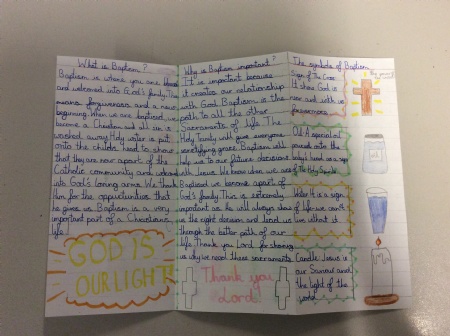 What is Baptism?
Baptism is where you are blessed
and welcomed into God's family. It
means forgiveness and a new
beginning. When we are baptised, we
become a Christian and all sin is
washed away. Holy water is put
onto the childs head to show
that they are now apart of the
Catholic community and welcomed
into God's loving arms. We thank
Him for the opportunities that
he gives us. Baptism is a very
important part of a Christians
life!
GOD IS
OUR LIGHT!
Why is Baptism important?
It is important because
it creates our relationship
with God. Baptism is the
path to all the other
Sacraments of life. The
Holy Trinity will give everyone
sanctifying grace. Baptism will
help us to our future decisions
with Jesus. We know when we are
Baptised we become apart of
God's family. This is extremely
important as he will always show
us the right decision and lead us
through the better path of our
life. Thank you Lord for sharing
us why we need these sacraments.
Thank you
Lord!
The symbols of Baptism
Sign of The Cross
It shows God is
near and with us
forevermore.
Oil A special oil
poured onto the
baby's head as a sign
of The Holy Spirit.
Water It is a sign
of life we can't
live without it.
Candle Jesus is
our Saviour and
the light of the
world.